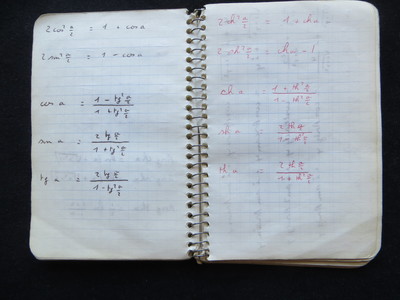 2cos² a/2 = 1 + cos a
2sin² a/2 = 1 - cos a
cos a = (1 - tg² a/2) / (1 + tg² a/2)
sin a = (2 tg a/2) / (1 + tg² a/2)
tg a = (2 tg a/2) / (1 - tg² a/2)
2 ch² a/2 = 1 + ch a
2 sh² a/2 = ch a - 1
ch a = (1 + th² a/2) / (1 - th² a/2)
sh a =
th a = (2 th a/2) / (1 + th² a/2)